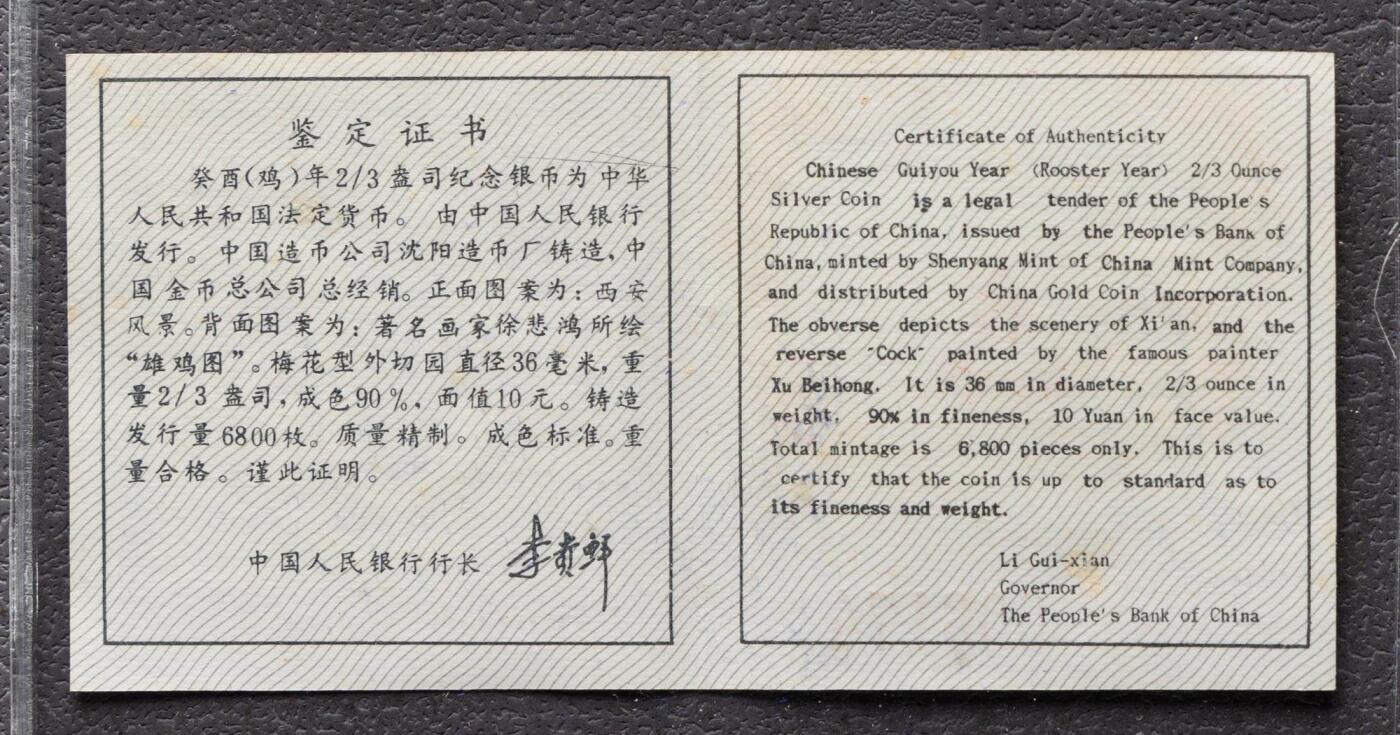 鉴定证书
癸酉(鸡)年2/3盎司纪念银币为中华
人民共和国法定货币。由中国人民银行
发行。中国造币公司沈阳造币厂铸造,中
国金币总公司总经销。正面图案为:西安
风景。背面图案为:著名画家徐悲鸿所绘
“雄鸡图”。梅花型外切园直径36毫米,重
量2/3盎司,成色90%,面值10元。铸造
发行量6800枚。质量精制。成色标准。重
量合格。谨此证明。
中国人民银行行长 李贵鲜
Certificate of Authenticity
Chinese Guiyou Year (Rooster Year) 2/3 Ounce
Silver Coin is a legal tender of the People's
Republic of China, issued by the People's Bank of
China, minted by Shenyang Mint of China Mint Company,
and distributed by China Gold Coin Incorporation.
The obverse depicts the scenery of Xi'an, and the
reverse "Cock" painted by the famous painter
Xu Beihong. It is 36 mm in diameter, 2/3 ounce in
weight, 90% in fineness, 10 Yuan in face value.
Total mintage is 6,800 pieces only. This is to
certify that the coin is up to standard as to
its fineness and weight.
Li Gui-xian
Governor
The People's Bank of China